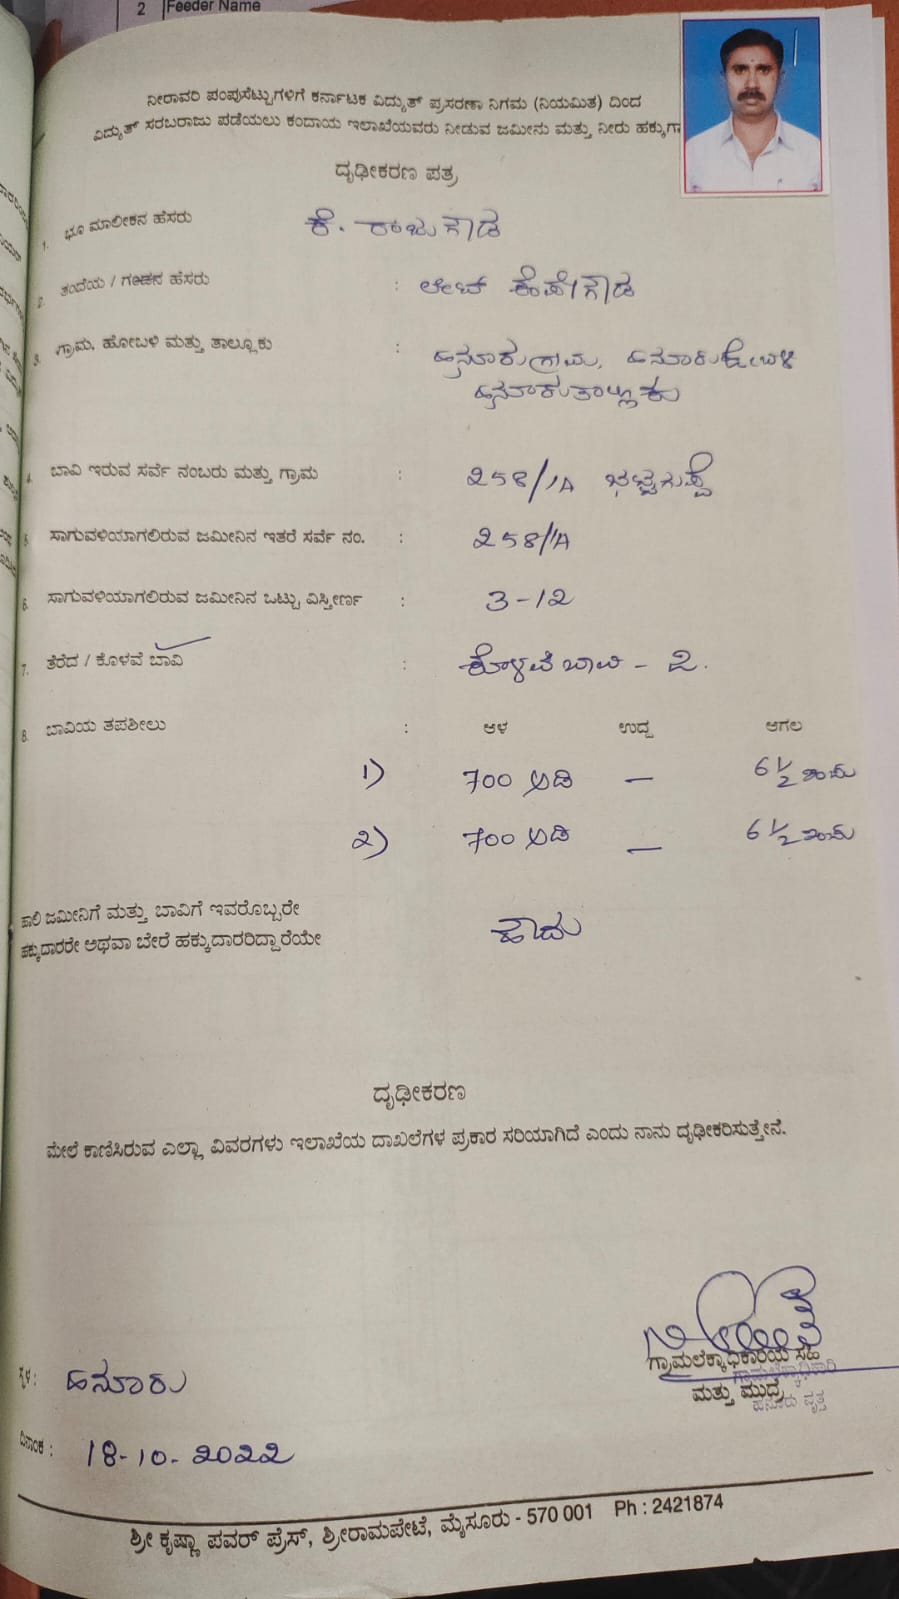 2 Feeder Name
ನೀರಾವರಿ ಪಂಪುಸೆಟ್ಟುಗಳಿಗೆ ಕರ್ನಾಟಕ ವಿದ್ಯುತ್ ಪ್ರಸರಣಾ ನಿಗಮ (ನಿಯಮಿತ) ದಿಂದ
ವಿದ್ಯುತ್ ಸರಬರಾಜು ಪಡೆಯಲು ಕಂದಾಯ ಇಲಾಖೆಯವರು ನೀಡುವ ಜಮೀನು ಮತ್ತು ನೀರು ಹಕ್ಕುಗಾ
ದೃಢೀಕರಣ ಪತ್ರ
1. ಭೂ ಮಾಲೀಕನ ಹೆಸರು ಕೆ. ರಾಜುಗೌಡ
2. ತಂದೆಯ / ಗಂಡನ ಹೆಸರು : ಲೇಟ್ ಕೆಂಪೇಗೌಡ
3. ಗ್ರಾಮ, ಹೋಬಳಿ ಮತ್ತು ತಾಲ್ಲೂಕು : ಹನೂರು ಗ್ರಾಮ, ಹನೂರು ಹೋಬಳಿ
ಹನೂರು ತಾಲ್ಲೂಕು
4. ಬಾವಿ ಇರುವ ಸರ್ವೆ ನಂಬರು ಮತ್ತು ಗ್ರಾಮ : 258/1A
5. ಸಾಗುವಳಿಯಾಗಲಿರುವ ಜಮೀನಿನ ಇತರೆ ಸರ್ವೆ ನಂ. : 258/1A
6. ಸಾಗುವಳಿಯಾಗಲಿರುವ ಜಮೀನಿನ ಒಟ್ಟು ವಿಸ್ತೀರ್ಣ : 3-12
7. ತೆರೆದ / ಕೊಳವೆ ಬಾವಿ : ಕೊಳವೆ ಬಾವಿ - ೨.
8. ಬಾವಿಯ ತಪಶೀಲು : ಆಳ ಉದ್ದ ಅಗಲ
1) 700 ಅಡಿ — 6 1/2 ಇಂಚು
೨) 700 ಅಡಿ — 6 1/2 ಇಂಚು
ಖಾಲಿ ಜಮೀನಿಗೆ ಮತ್ತು ಬಾವಿಗೆ ಇವರೊಬ್ಬರೇ
ಹಕ್ಕುದಾರರೇ ಅಥವಾ ಬೇರೆ ಹಕ್ಕುದಾರರಿದ್ದಾರೆಯೇ ಹೌದು
ದೃಢೀಕರಣ
ಮೇಲೆ ಕಾಣಿಸಿರುವ ಎಲ್ಲಾ ವಿವರಗಳು ಇಲಾಖೆಯ ದಾಖಲೆಗಳ ಪ್ರಕಾರ ಸರಿಯಾಗಿದೆ ಎಂದು ನಾನು ದೃಢೀಕರಿಸುತ್ತೇನೆ.
ಗ್ರಾಮಲೆಕ್ಕಾಧಿಕಾರಿಯ ಸಹಿ
ಗ್ರಾಮಲೆಕ್ಕಾಧಿಕಾರಿ
ಮತ್ತು ಮುದ್ರೆ
ಹನೂರು ವೃತ್ತ
ಸ್ಥಳ : ಹನೂರು
ದಿನಾಂಕ : 18-10-೨೦೨೨
ಶ್ರೀ ಕೃಷ್ಣಾ ಪವರ್ ಪ್ರೆಸ್, ಶ್ರೀರಾಮಪೇಟೆ, ಮೈಸೂರು - 570 001 Ph : 2421874